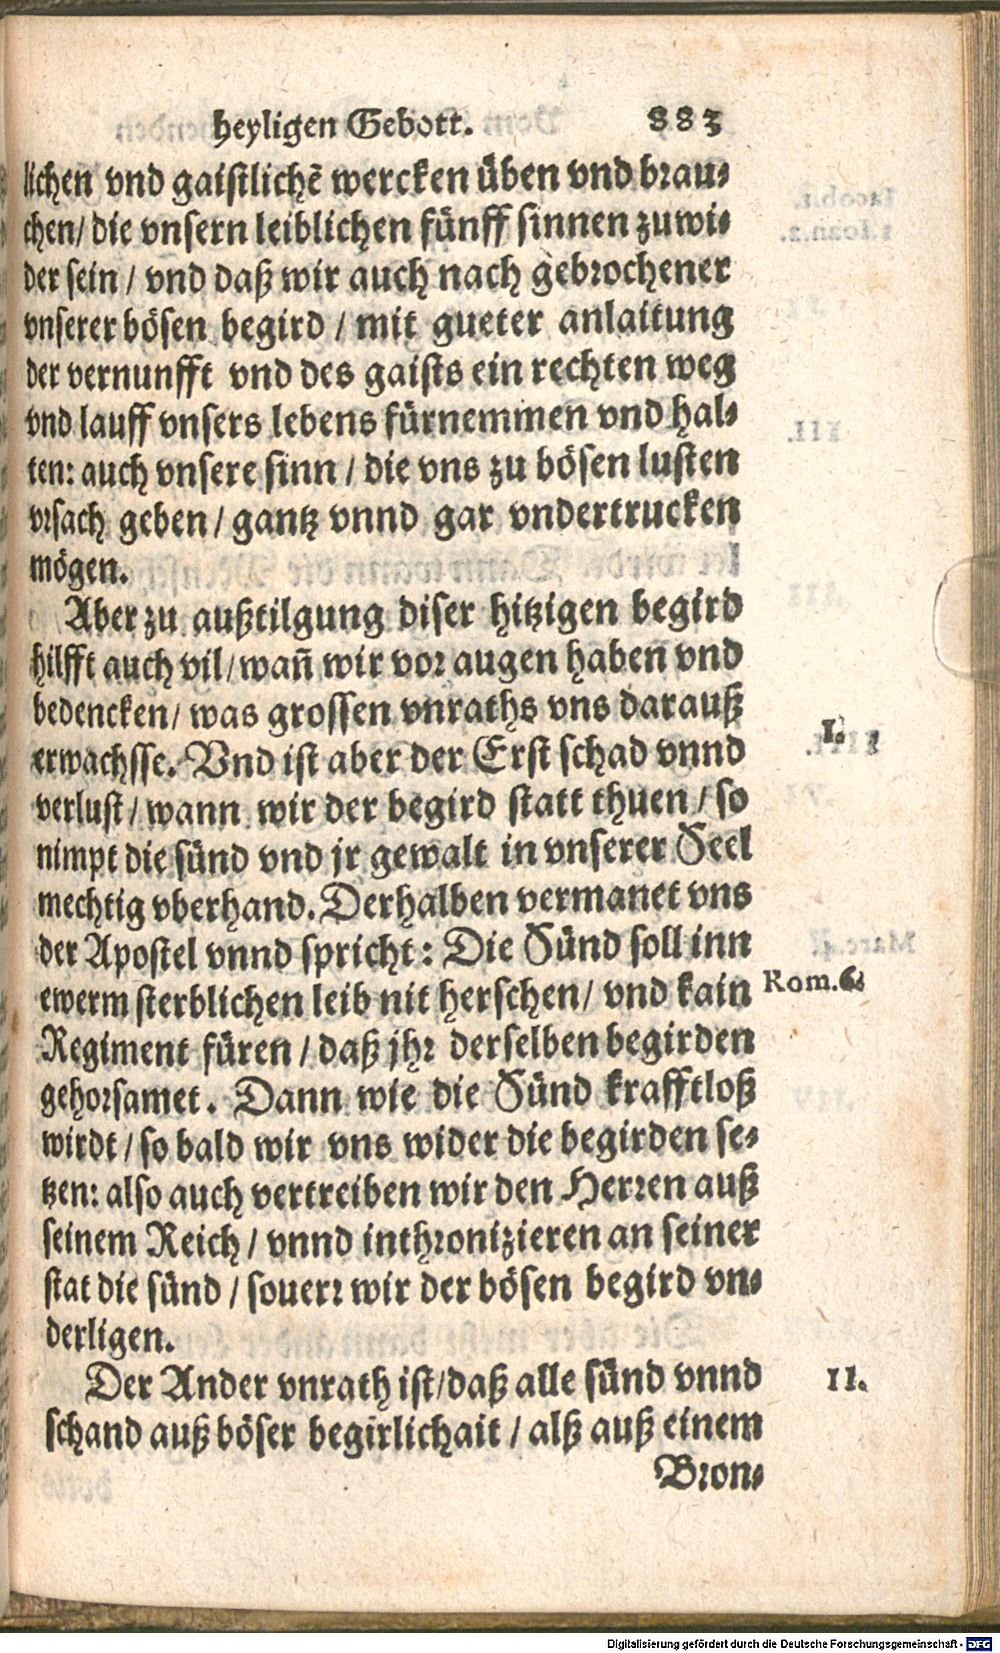 heyligen Gebott. 883
lichen vnd gaistlichē wercken üben vnd brau⸗
chen/ die vnsern leiblichen fünff sinnen zuwi⸗
der sein / vnd daß wir auch nach gebrochener
vnserer bösen begird / mit gueter anlaitung
der vernunfft vnd des gaists ein rechten weg
vnd lauff vnsers lebens fürnemmen vnd hal⸗
ten: auch vnsere sinn / die vns zu bösen lusten
vrsach geben / gantz vnnd gar vndertrucken
mögen.
Aber zu außtilgung diser hitzigen begird
hilfft auch vil/ wañ wir vor augen haben vnd
bedencken/ was grossen vnraths vns darauß
erwachsse. Vnd ist aber der Erst schad vnnd I.
verlust / wann wir der begird statt thuen / so
nimpt die sünd vnd jr gewalt in vnserer Seel
mechtig vberhand. Derhalben vermanet vns
der Apostel vnnd spricht: Die Sünd soll inn
ewerm sterblichen leib nit herschen/ vnd kain Rom.6.
Regiment füren / daß jhr derselben begirden
gehorsamet. Dann wie die Sünd krafftloß
wirdt / so bald wir vns wider die begirden se⸗
tzen: also auch vertreiben wir den Herren auß
seinem Reich / vnnd inthronizieren an seiner
stat die sünd / souerr wir der bösen begird vn⸗
derligen.
Der Ander vnrath ist/ daß alle sünd vnnd II.
schand auß böser begirlichait / alß auß einem
Bron⸗
Digitalisierung gefördert durch die Deutsche Forschungsgemeinschaft - DFG